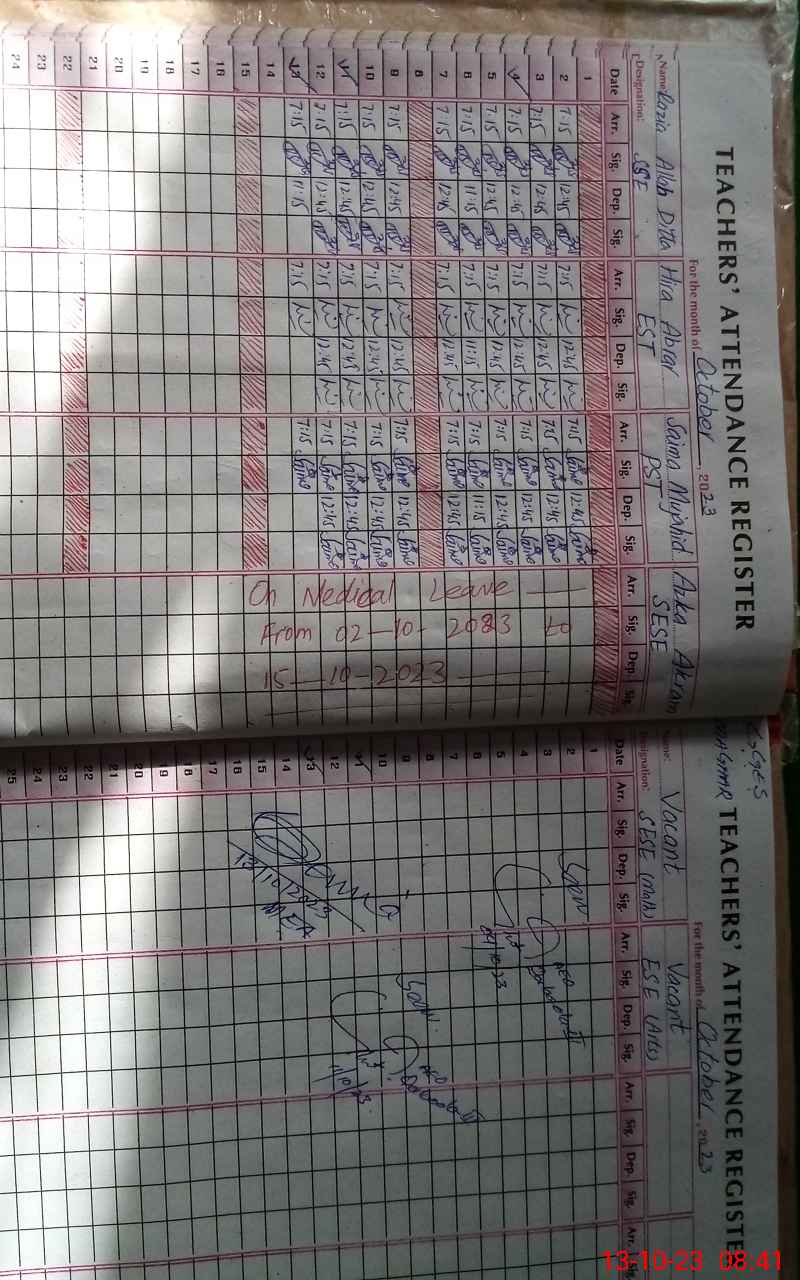 TEACHERS' ATTENDANCE REGISTER
For the month of October, 2023
Name: Razia Allah Ditta Hira Abrar Saima Mujahid Azka Akram
Designation: SSE EST PST SESE
Date Arr. Sig. Dep. Sig. Arr. Sig. Dep. Sig. Arr. Sig. Dep. Sig. Arr. Sig. Dep. Sig.
1
2 7:15 12:45 7:15 12:45 7:15 Saima 12:45 Saima
3 7:15 12:45 7:15 12:45 7:15 Saima 12:45 Saima
4 7:15 12:45 7:15 12:45 7:15 Saima 12:45 Saima
5 7:15 12:45 7:15 12:45 7:15 Saima 12:45 Saima
6 7:15 11:15 7:15 11:15 7:15 Saima 11:15 Saima
7 7:15 12:45 7:15 12:45 7:15 Saima 12:45 Saima
8
9 7:15 12:45 7:15 12:45 7:15 Saima 12:45 Saima
10 7:15 12:45 7:15 12:45 7:15 Saima 12:45 Saima
11 7:15 12:45 7:15 12:45 7:15 Saima 12:45 Saima
12 7:15 12:45 7:15 12:45 7:15 Saima 12:45 Saima
13 7:15 11:15 7:15 7:15 Saima
14
15
16
17
18
19
20
21
22
23
24
On Medical Leave
From 02-10-2023 to
15-10-2023
TEACHERS' ATTENDANCE REGISTE
For the month of October, 2023
Name: Vacant Vacant
Designation: SESE (Math) ESE (Arts)
Date Arr. Sig. Dep. Sig. Arr. Sig. Dep. Sig. Arr. Sig. Dep. Sig. Arr. Sig.
1
2
3
4
5
6
7
8
9
10
11
12
13
14
15
16
17
18
19
20
21
22
23
24
25
AEO
04/10/23
AEO
11/10/23
MEA
13-10-23 08:41